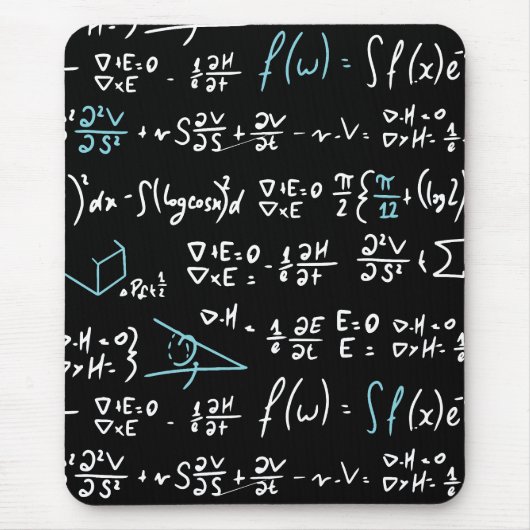 ∇+E=0 ∇×E - 1/e ∂H/∂t f(ω) = ∫f(x)e
∂²V/∂S² + r S ∂V/∂S + ∂V/∂t - r.V = ∇.H=0 ∇×H= 1/e
)² dx - ∫(log cosx)² d ∇+E=0 ∇×E π/2 { π/12 + (log2)
∇+E=0 ∇×E = - 1/e ∂H/∂t ∂²V/∂S² + ∑
∇.H=0 ∇×H= } ∇.H = 1/e ∂E/∂t E=0 E = ∇.H=0 ∇×H=
- ∇+E=0 ∇×E - 1/e ∂H/∂t f(ω) = ∫f(x)e
∂²V/∂S² + r S ∂V/∂S + ∂V/∂t - r.V = ∇.H=0 ∇×H= 1/e